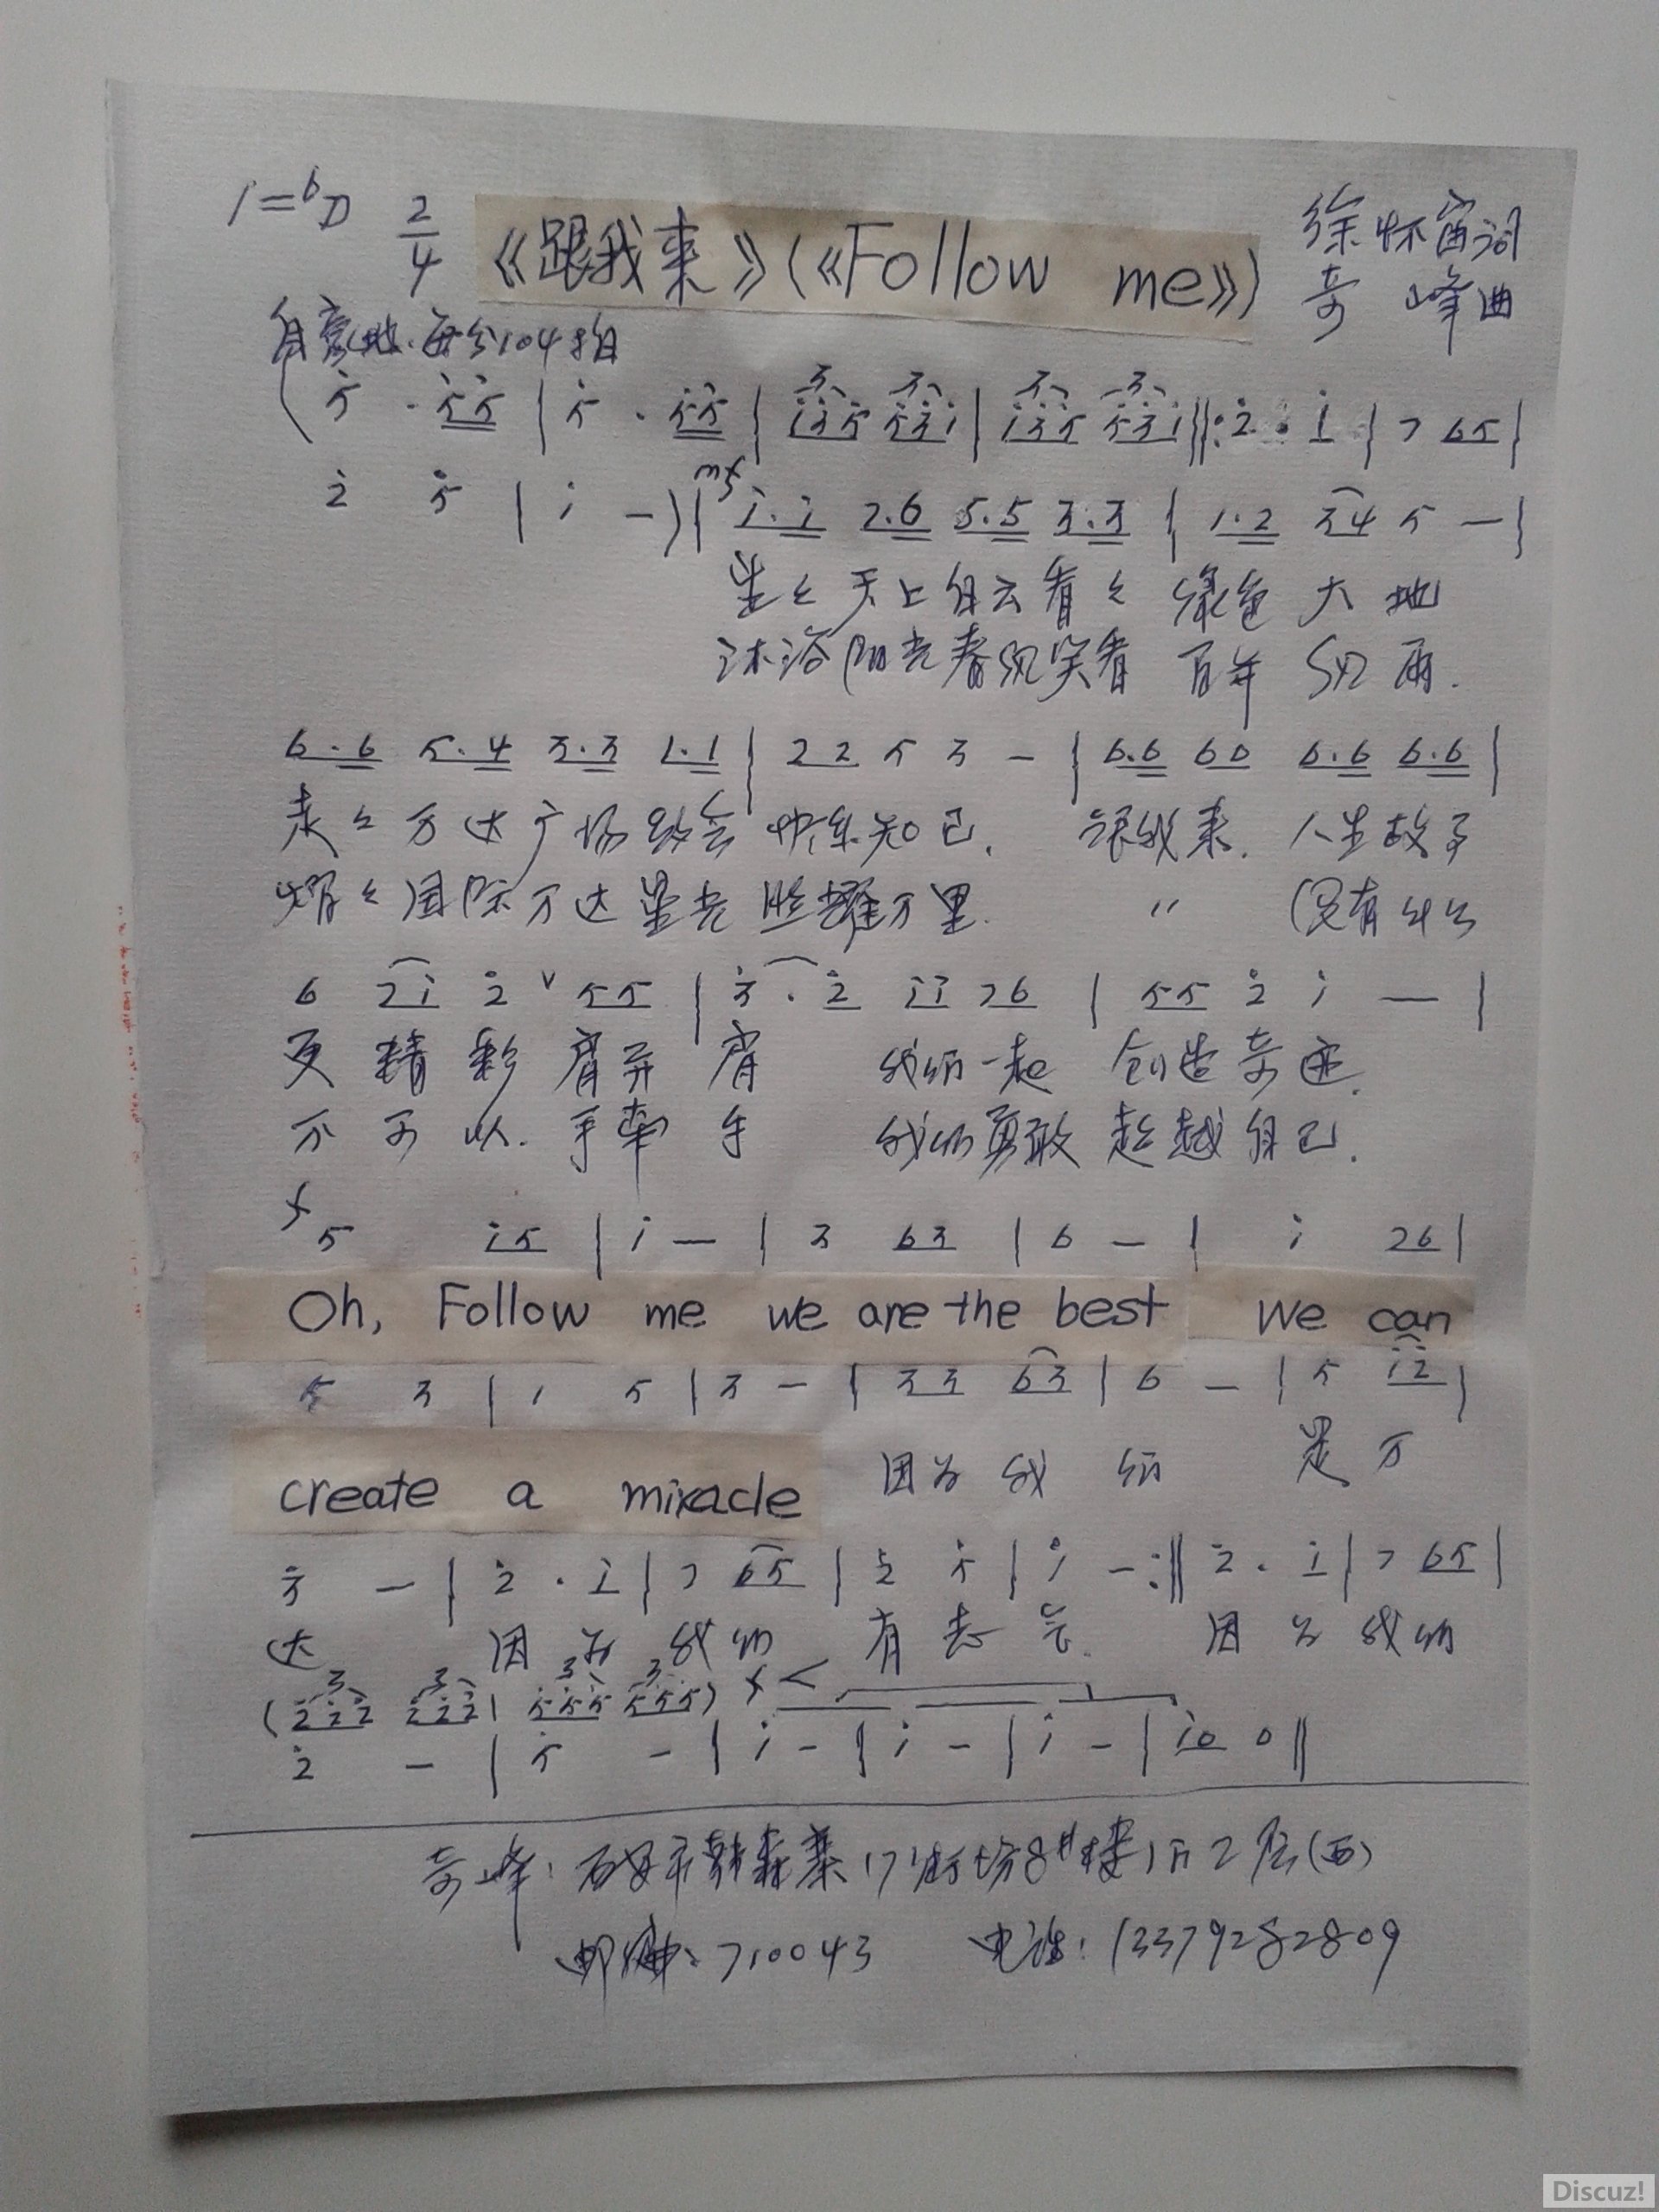 1=♭D 2/4 《跟我来》(《Follow me》) 徐怀宙词
奇峰曲
自豪地.每分104拍
(5̇ . 5̇5̇ | 5̇ . 5̇5̇ | 1̇3̇5̇ 5̇3̇1̇ | 1̇3̇5̇ 5̇3̇1̇ ‖: 2̇ . 1̇ | 7 65 |
2̇ 5̇ | 1̇ - ) | mf 1̇.1̇ 7.6 5.5 3.3 | 1.2 34 5 - |
坐々天上白云看々绿色大地
沐浴阳光春风笑看百年风雨.
6.6 5.4 3.3 1.1 | 22 5 3 - | 6.6 60 6.6 6.6 |
走々万达广场致会快乐知己. 跟我来. 人生故事
耀々国际万达星光照耀万里. 〃 (没有什么
6 71̇ 2̇ ∨ 55 | 3̇ . 2̇ 1̇1̇ 76 | 55 2̇ 1̇ — |
更精彩肩并肩 我们一起创造奇迹.
不可以. 手牵手 我们勇敢超越自己.
f 5 1̇5 | 1̇ — | 3 63 | 6 - | 1̇ 76 |
Oh, Follow me we are the best We can
5 3 | 1 5 | 3 - | 33 63 | 6 - | 5 1̇2̇ |
create a miracle 因为我们 是万
3̇ - | 2̇ . 1̇ | 7 65 | 2̇ 5̇ | 1̇ - :‖ 2̇ . 1̇ | 7 65 |
达 因为我们有志气. 因为我们
(2̇2̇2̇ 2̇2̇2̇ | 5̇5̇5̇ 5̇5̇5̇) f <
2̇ - | 5̇ - | 1̇ - | 1̇ - | 1̇ - | 1̇0 0 ‖
奇峰:西安市韩森寨17街坊8#楼1门2层(西)
邮编:710043 电话:13379282809
Discuz!